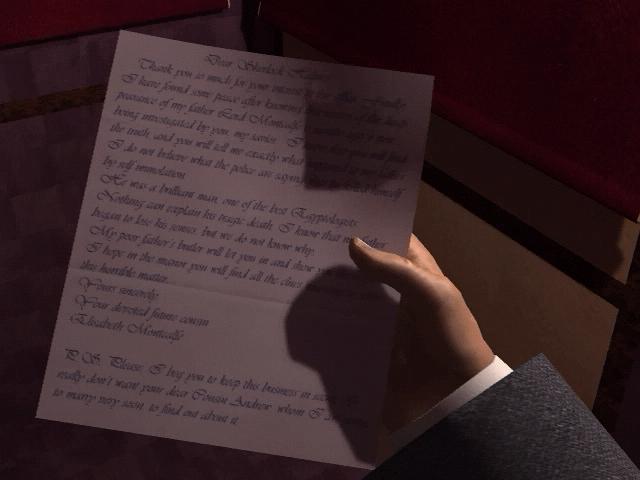 Dear Sherlock Holmes
Thank you so much for your interest in this affair. Finally
I have found some peace after knowing
pearance of my father Lord Montcalfe
being investigated by you, my savior. I you will find
the truth, and you will tell me exactly what happened to my father
I do not believe what the police are saying himself
by self immolation.
He was a brilliant man, one of the best Egyptologists.
Nothing can explain his tragic death. I know that my father
began to lose his senses, but we do not know why.
My poor father's butler will let you in and show you
I hope in the manor you will find all the clues
this horrible matter.
Yours sincerely,
Your devoted future cousin
Elisabeth Montcalfe
P.S. Please, I beg you to keep this business in
really don't want your dear Cousin Andrew, whom I
to marry very soon, to find out about it.